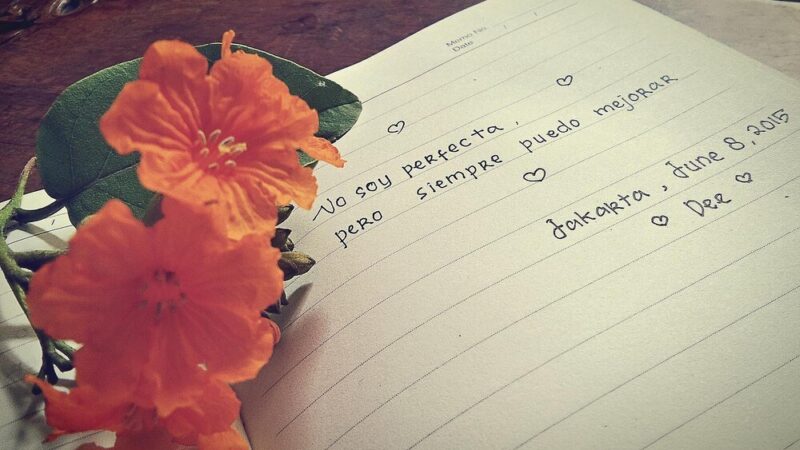 Memo No.
Date / /
No soy perfecta,
pero siempre puedo mejorar
Jakarta, June 8, 2015
Dee